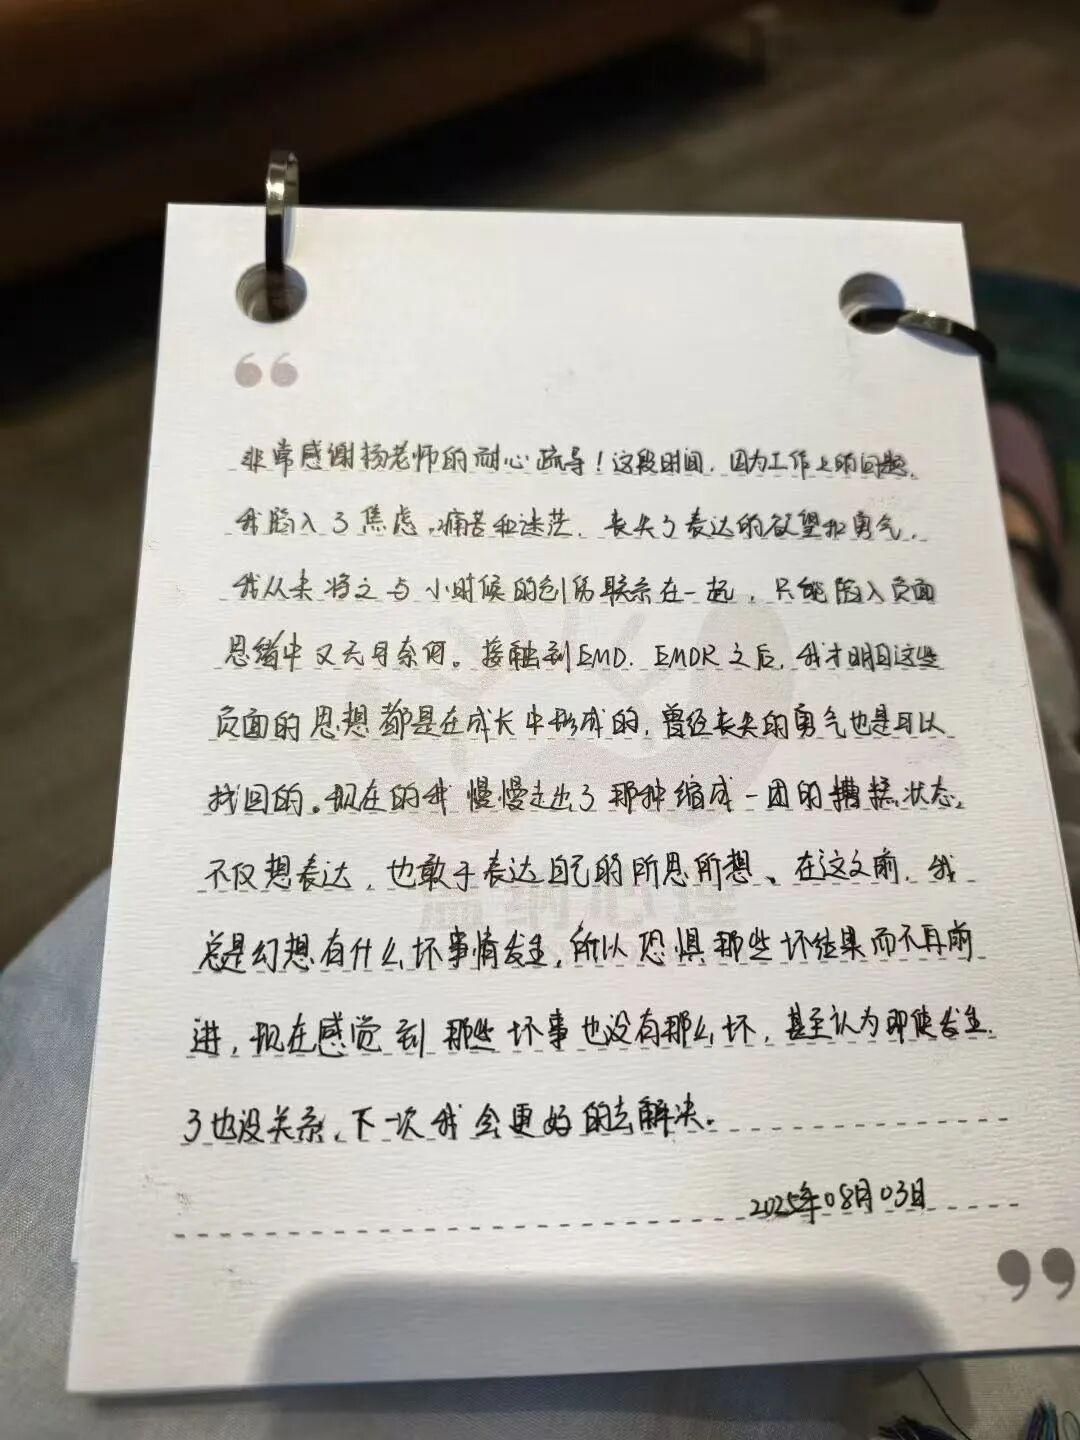 “
非常感谢杨老师的耐心疏导！这段时间，因为工作上的问题，
我陷入了焦虑，痛苦和迷茫，丧失了表达的欲望和勇气，
我从未将之与小时候的创伤联系在一起，只能陷入负面
思绪中又无可奈何。接触到EMD，EMDR之后，我才明白这些
负面的思想都是在成长中形成的，曾经丧失的勇气也是可以
找回的。现在的我慢慢走出了那种缩成一团的糟糕状态，
不仅想表达，也敢于表达自己的所思所想、在这之前，我
总是幻想有什么坏事情发生，所以恐惧那些坏结果而不再前
进，现在感觉到那些坏事也没有那么坏，甚至认为即使发生
了也没关系，下一次我会更好的去解决。
2025年08月03日
”